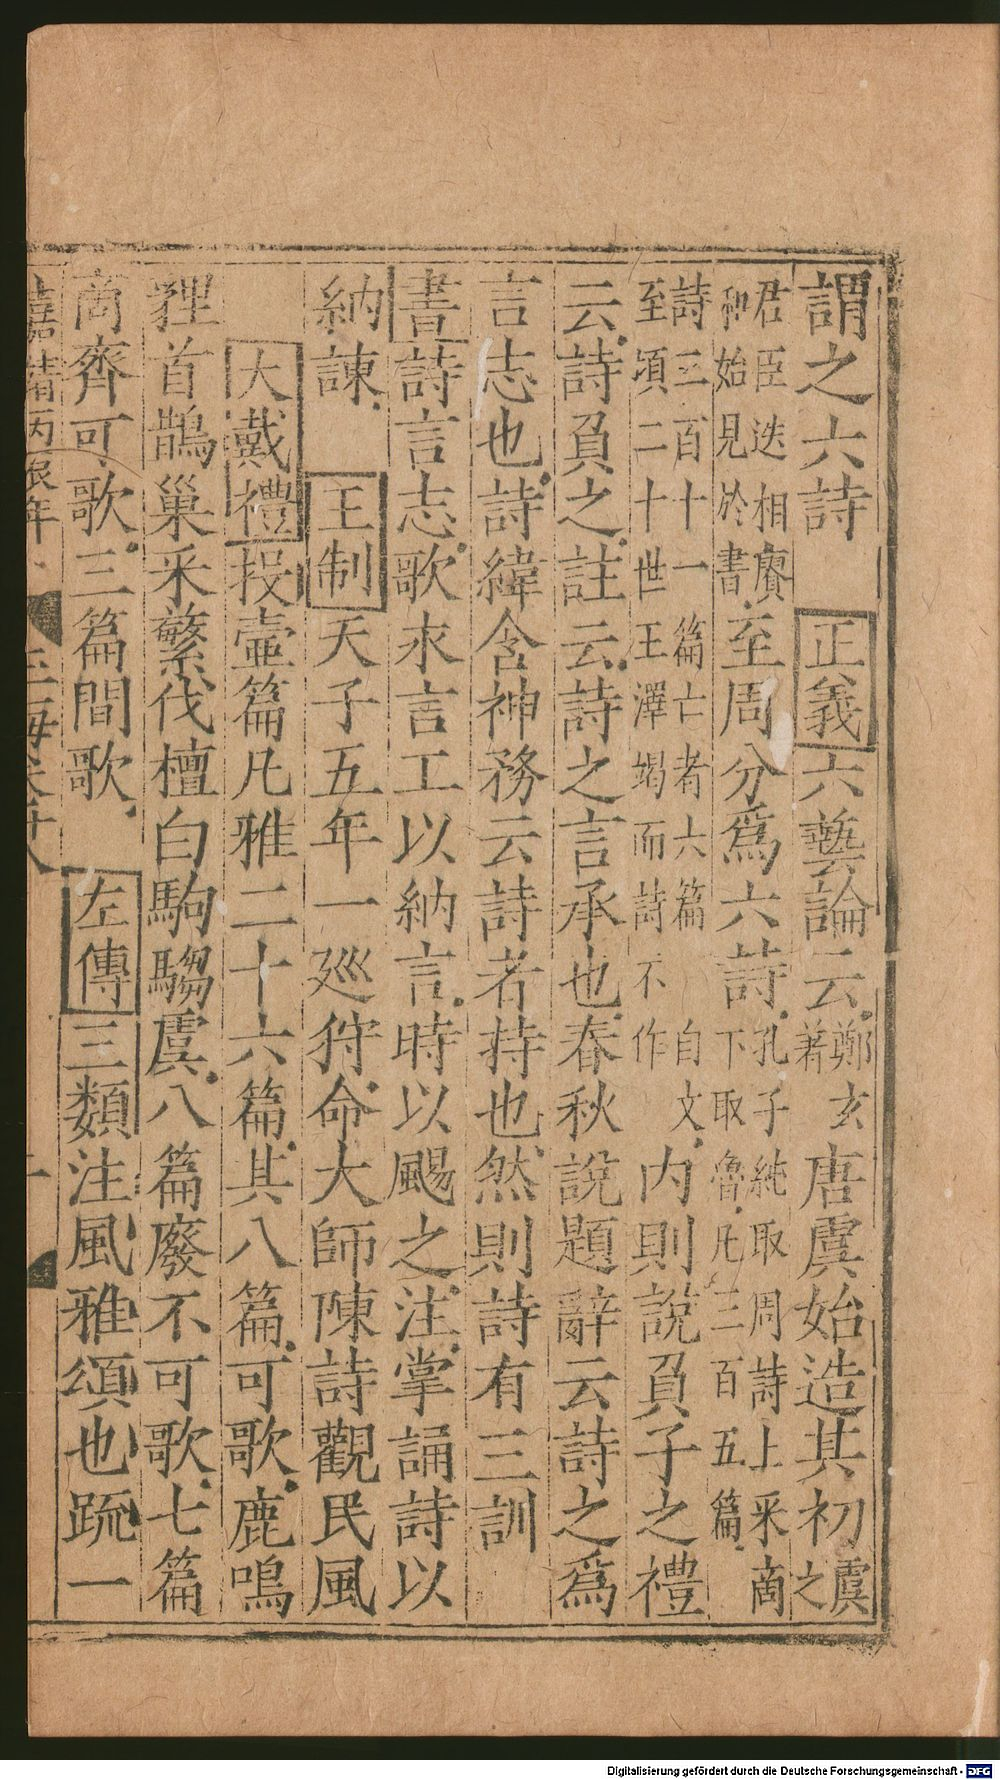 謂之六詩 正義六藝論云鄭玄著唐虞始造其初虞之
君臣迭相賡和始見於書至周分爲六詩孔子純取周詩上采商下取魯凡三百五篇
詩三百十一篇亡者六篇 自文至頃二十世王澤竭而詩不作 内則說負子之禮
云詩負之註云詩之言承也春秋說題辭云詩之爲
言志也詩緯含神務云詩者持也然則詩有三訓
書詩言志歌永言工以納言時以颺之注掌誦詩以
納諫 王制天子五年一廵狩命大師陳詩觀民風
大戴禮投壷篇凡雅二十六篇其八篇可歌鹿鳴
貍首鵲巢采蘩伐檀白駒騶虞八篇廢不可歌七篇
商齊可歌三篇間歌 左傳三類注風雅頌也疏一
嘉靖丙辰年 玉海卷五十八
Digitalisierung gefördert durch die Deutsche Forschungsgemeinschaft - DFG